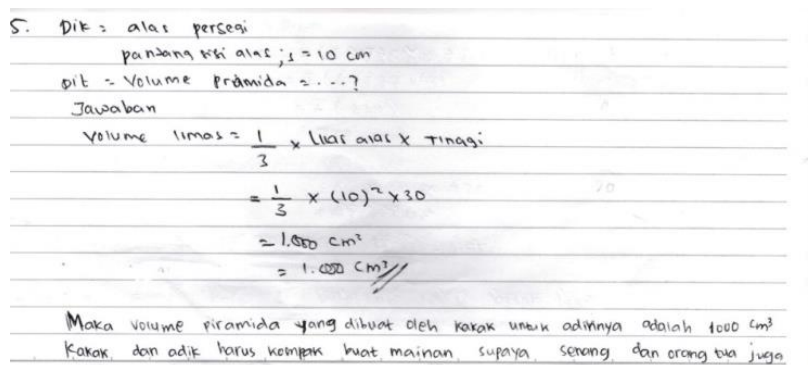 5. Dik : alas persegi
panjang sisi alas ; s = 10 cm
Dit = Volume Pramida = ....?
Jawaban
Volume limas = 1/3 x Luas alas x Tinggi
= 1/3 x (10)² x 30
= 1.000 cm³
= 1.000 cm³ //
Maka volume piramida yang dibuat oleh kakak untuk adiknya adalah 1000 cm³
Kakak dan adik harus kompak buat mainan supaya senang dan orang tua juga